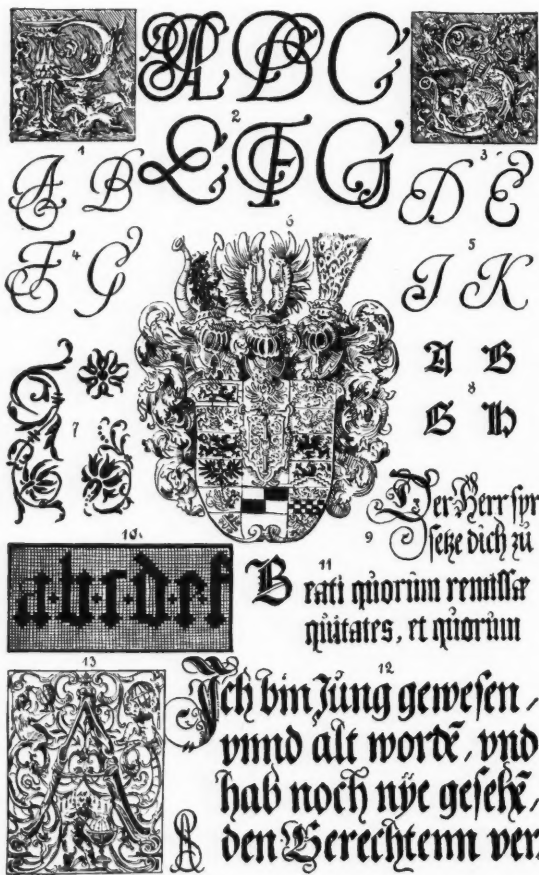 P A B C S
E F G
1 2 3
A B D E
4 6 5
F G I K
A B
7 8
G H
Der Herr spr
9 setze dich zu
10.
a·b·c·d·e·f
11
Beati quorum remissæ
quitates, et quorum
13 12
A
Ich bin Jung gewesen /
vnnd alt wordē / vnd
hab noch nÿe gesehē /
den Gerechtenn ver.